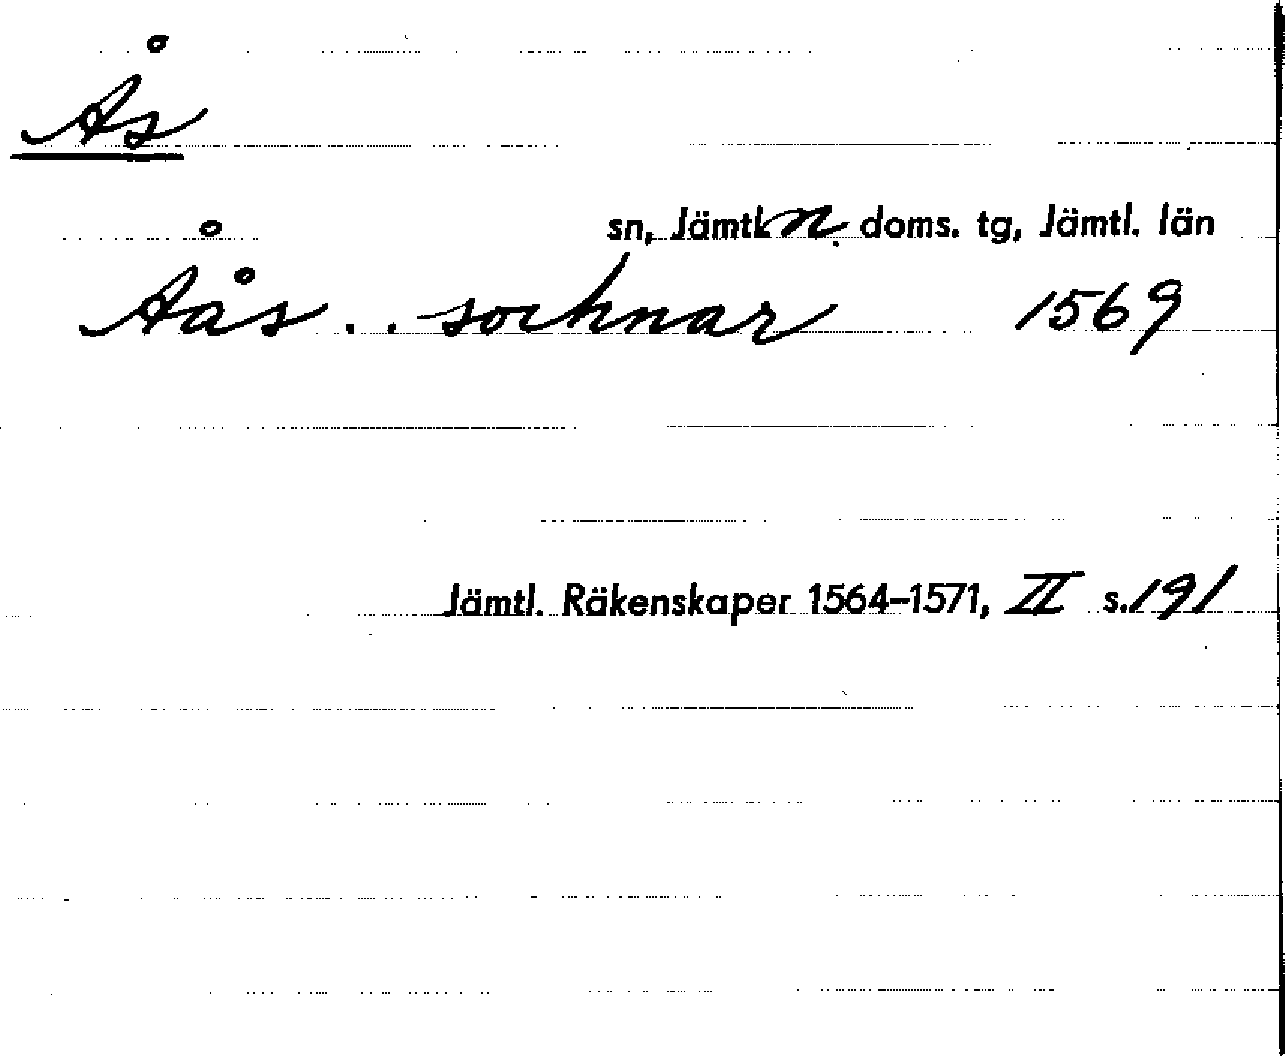 Ås
sn, Jämtl. n. doms. tg, Jämtl. län
Åås .. sochnar 1569
Jämtl. Räkenskaper 1564–1571, II s. 191